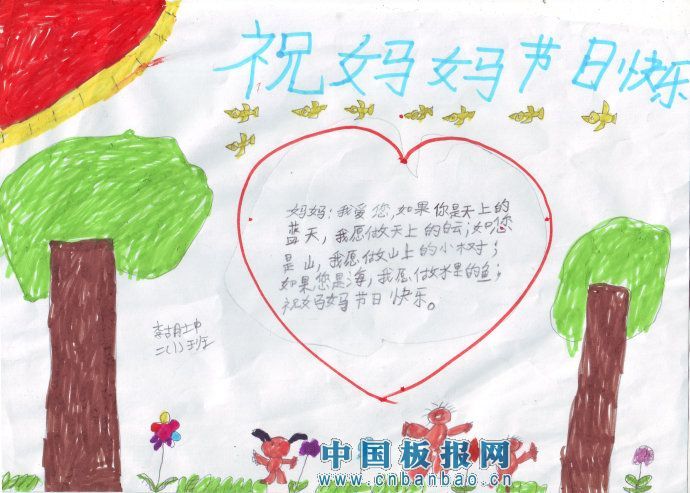 祝妈妈节日快乐
妈妈：我爱您,如果你是天上的
蓝天，我愿做天上的白云；如您
是山，我愿做山上的小树；
如果您是海，我愿做水里的鱼；
祝妈妈节日快乐。
二(1)班
中国板报网
www.cnbanbao.cn